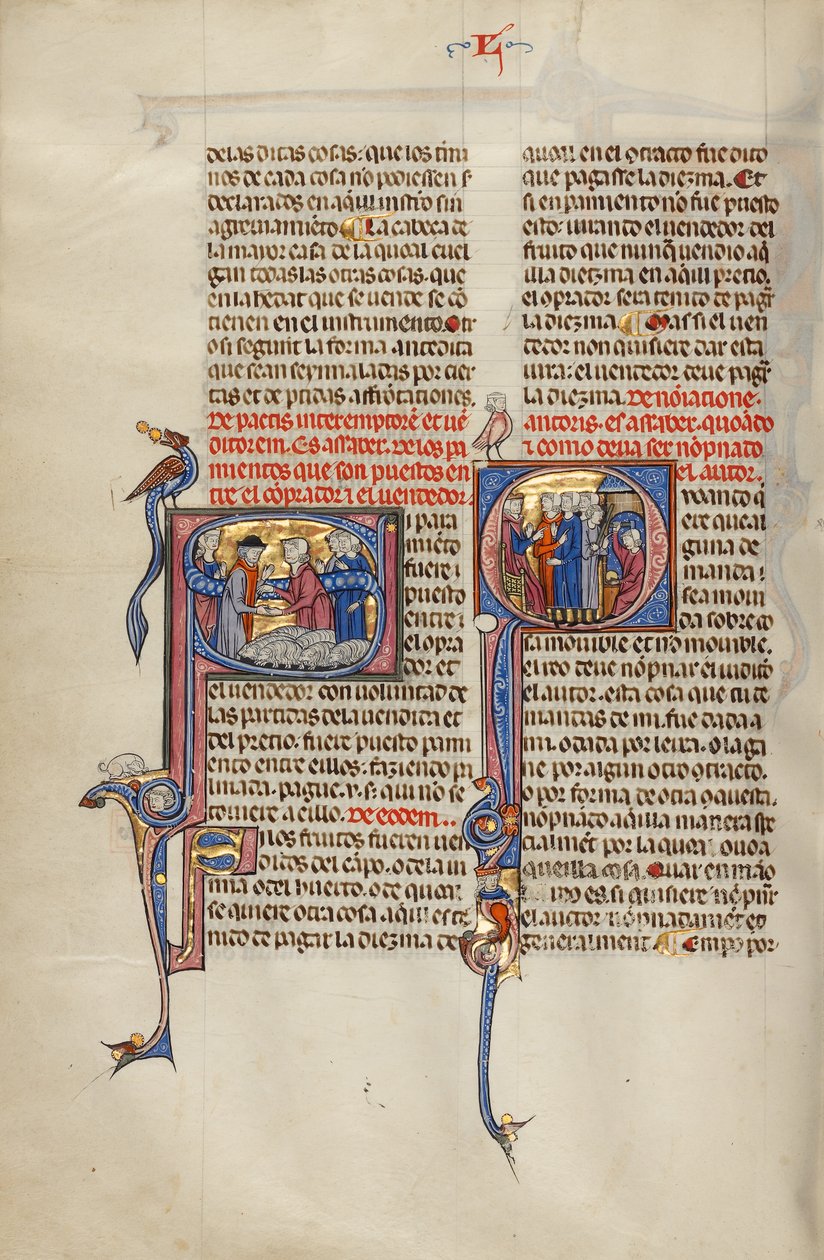 L
delas ditas cosas: que los tmi
nos de cada cosa nō podiessen s
declarados en aq̄ll instro sin
agreuiamiēto La cabeça de
la mayor casa de la quoal cuel
gan todas las otras cosas. que
en la hedat que se uende se cō
tienen en el instrumento. Otr
o si segunt la forma antedita
que sean seynnaladas por cier
tas et de ptidas affrōtaciones.
De pactis inter emptorē et uē
ditorem. Es assaber. de los pa
mientos que son puestos en
tre el cōprador ⁊ el uendedor.
Si para
miēto
fuere
puesto
entre
el cōpra
dor et
el uendedor con uoluntad de
las partidas de la uendida et
del precio. fuere puesto pami
ento entre eillos. faziendo pri
mada. pague. v. s. qui no se
touiere a eillo. De eodem..
Si los fruitos fueren uen
didos del cāpo. o de la ui
nna o del huerto. o de quoal
se quiere otra cosa aqueill es te
nido de pagar la diezma de
quoall en el ɔtracto fue dito
que pagasse la diezma. Et
si en pamiento nō fue puesto
esto. iurando el uendedor del
fruito que nunq̄ uendio aq̄
illa dietzma en aq̄ill precio.
el ɔprador sera tenido de pagr̄
la diezma. Mas si el uen
dedor non quisiere dar esta
iura: el uendedor deue pagr̄
la diezma. De nōiatione.
auctoris. es assaber. quoādo
⁊ como deua ser nōpnado
el autor.
Quando q̄
ere que al
guna de
manda
sea moui
da sobre co
sa mouible et nō mouible.
el reo deue nōpnar el iudiō
el autor. esta cosa que tu de
mandas de mi. fue dada a
mi. o dada por leixa. o la ga
ne por algun otro ɔtracto.
o por forma de otra ɔquesta.
nōpnādo aq̄lla manera spe
cialmēt por la quoal ouo a
queilla cosa. Quar en māo
es. si quisiere nōpnr̄
el auctor nōpnadamēt eo
generalment. Empo por